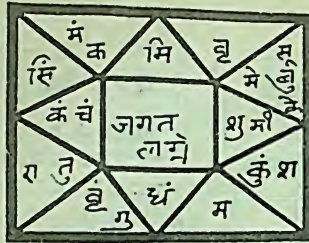 मं
क
मि
वृ
मे
बु
सिं
कं चं
जगत
लग्ने
शु मी
रा तु
वृ
गु
धं
म
कुं श